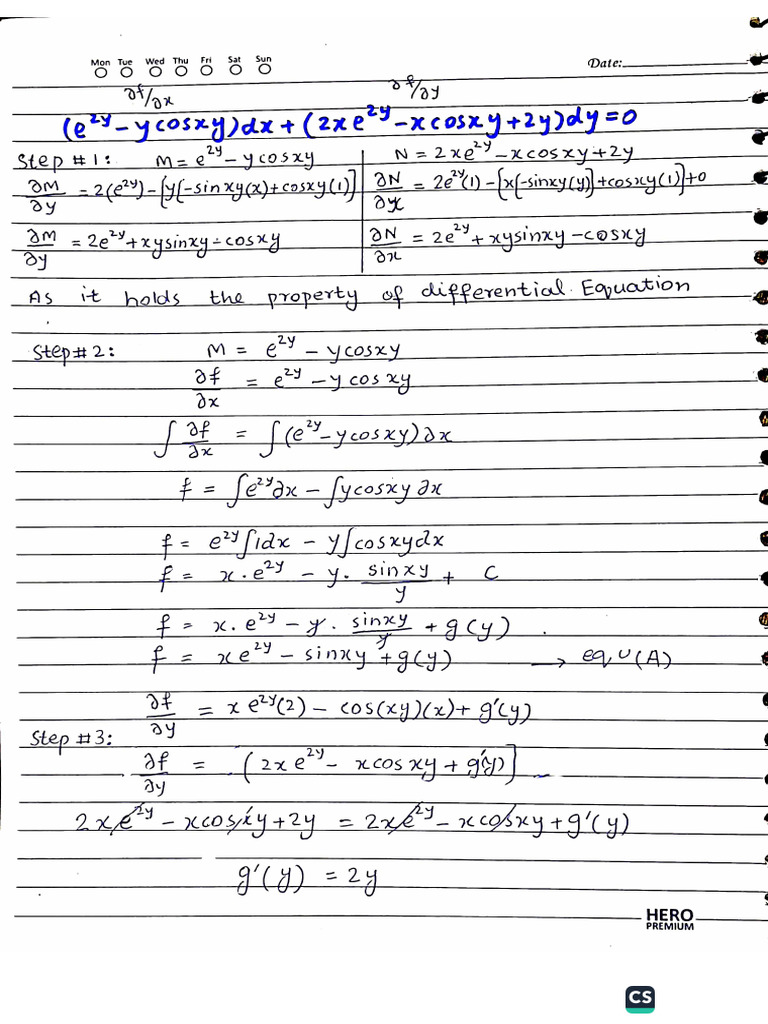 Mon Tue Wed Thu Fri Sat Sun
Date:
∂f/∂x ∂f/∂y
(e^2y - ycosxy)dx + (2xe^2y - xcosxy + 2y)dy = 0
Step #1: M = e^2y - ycosxy N = 2xe^2y - xcosxy + 2y
∂M/∂y = 2(e^2y) - [y(-sinxy(x) + cosxy(1)] ∂N/∂x = 2e^2y(1) - [x[-sinxy(y)] + cosxy(1)] + 0
∂M/∂y = 2e^2y + xysinxy - cosxy ∂N/∂x = 2e^2y + xysinxy - cosxy
As it holds the property of differential Equation
Step #2: M = e^2y - ycosxy
∂f/∂x = e^2y - ycosxy
∫ ∂f/∂x = ∫(e^2y - ycosxy)∂x
f = ∫e^2y∂x - ∫ycosxy∂x
f = e^2y∫1dx - y∫cosxydx
f = x·e^2y - y· sinxy/y + C
f = x·e^2y - y· sinxy/y + g(y).
f = xe^2y - sinxy + g(y) → equ(A)
∂f/∂y = xe^2y(2) - cos(xy)(x) + g'(y)
Step #3:
∂f/∂y = (2xe^2y - xcosxy + g'(y)]
2xe^2y - xcosxy + 2y = 2xe^2y - xcosxy + g'(y)
g'(y) = 2y
HERO
PREMIUM
CS